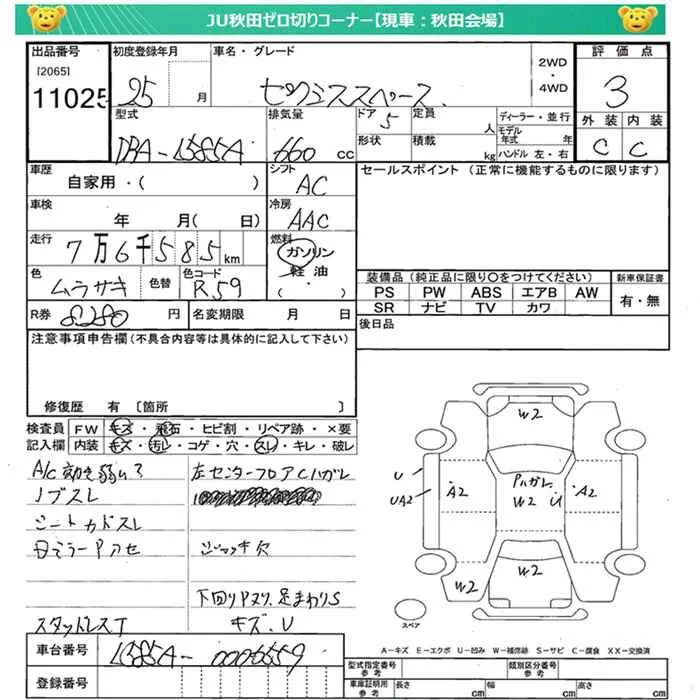 JU秋田ゼロ切りコーナー【現車：秋田会場】
出品番号
[2065]
11025
初度登録年月
25 月
車名・グレード
ピクシススペース
2WD
・
4WD
評価点
3
外装 内装
C C
型式
DBA-L585A
排気量
660 cc
ドア
5
定員
人
形状
積載
kg
ディーラー・並行
モデル年式 年
ハンドル 左・右
車歴
自家用・( )
シフト
AC
セールスポイント (正常に機能するものに限ります)
車検
年 月( 日)
冷房
AAC
走行
7万6千585km
燃料
ガソリン
軽油
( )
色
ムラサキ
色替
色コード
R59
装備品 (純正品に限り○をつけてください)
PS PW ABS エアB AW
SR ナビ TV カワ
新車保証書
有・無
R券
8280 円
名変期限 月 日
後日品
注意事項申告欄(不具合内容等は具体的に記入して下さい)
修復歴 有 〔箇所 〕
検査員
記入欄
FW キズ・飛石・ヒビ割・リペア跡・×要
内装 キズ・汚レ・コゲ・穴・スレ・キレ・破レ
A/C効き弱い?
ノブスレ
シートカドスレ
ミラーPアセ
スタッドレスT
左センターフロアCハガレ
ジャッキ欠
下回りPヌリ、足まわりS
キズ、U
W2
U
UA2
A2
Pハガレ
W2
U
A2
W2
W2
スペア
A－キズ E－エクボ U－凹み W－補修跡 S－サビ C－腐食 XX－交換済
車台番号
L585A-0006559
登録番号
型式指定番号
参考
類別区分番号
参考
車庫証明用
参考
長さ cm 幅 cm 高さ cm